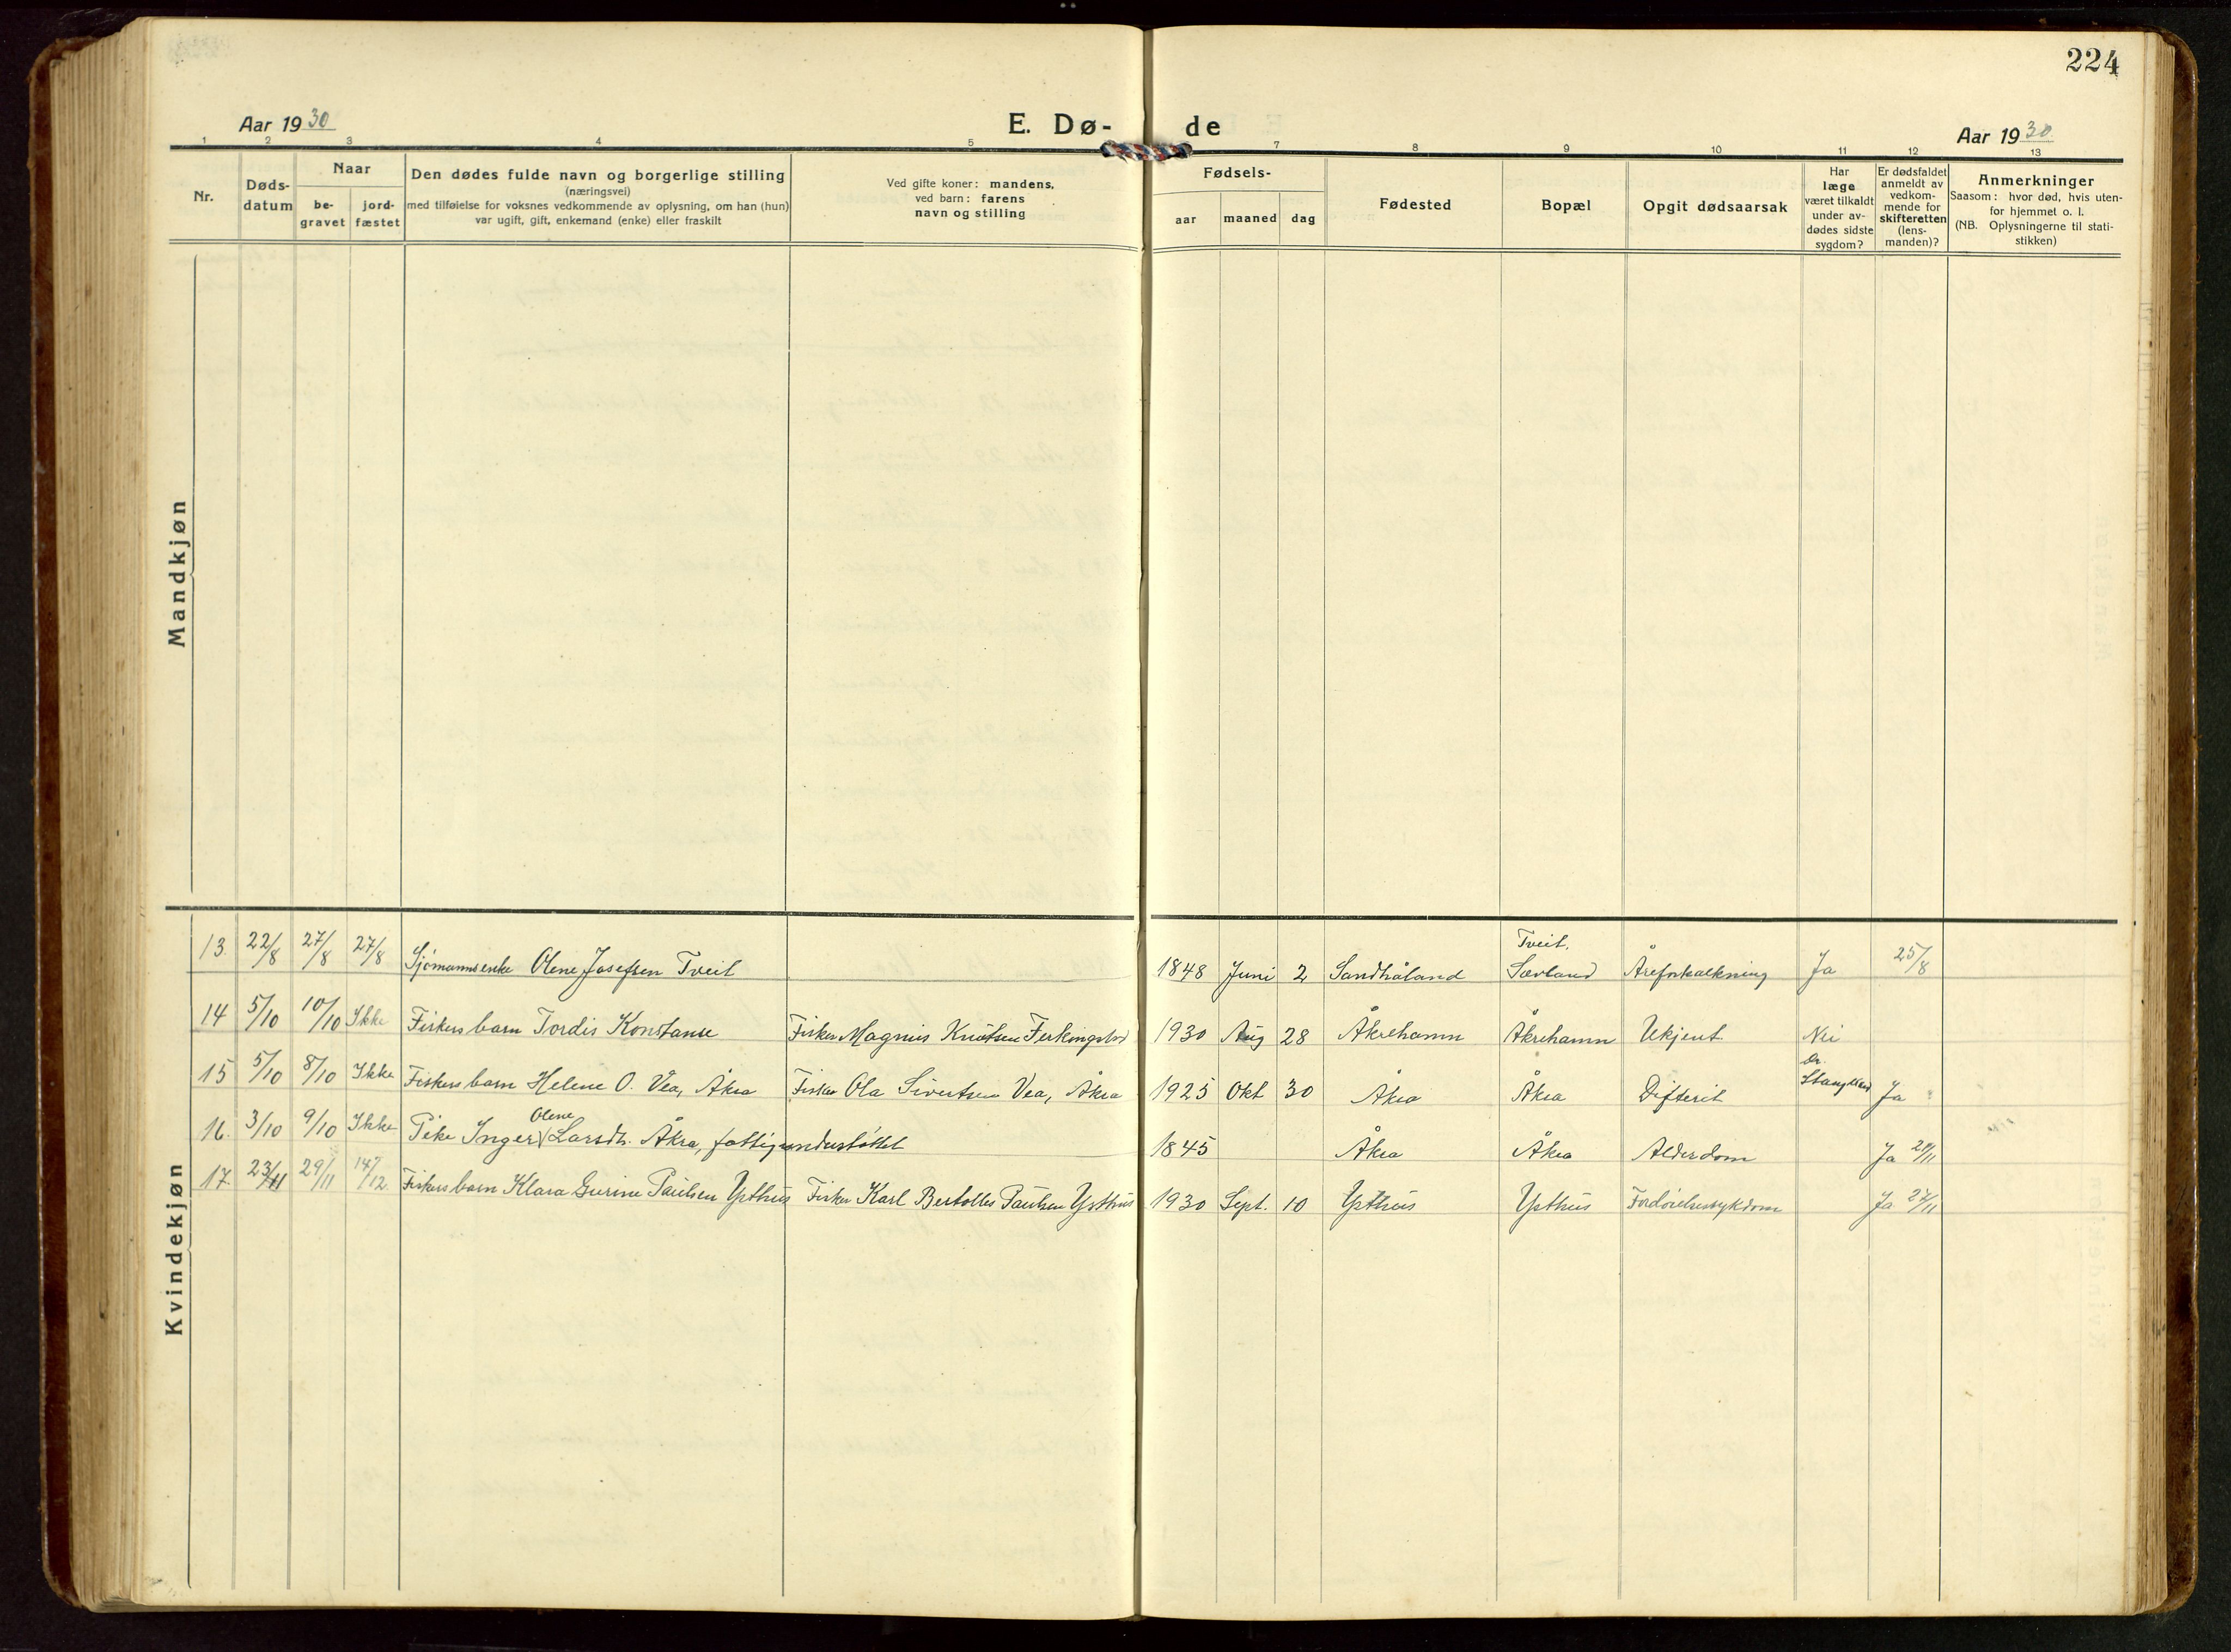 224
Aar 1930
E. Dø-
de
Aar 1930
1 2 3 4 5 7 8 9 10 11 12 13
Nr.
Døds-
datum
Naar
be-
gravet
jord-
fæstet
Den dødes fulde navn og borgerlige stilling
(næringsvei)
med tilføielse for voksnes vedkommende av oplysning, om han (hun)
var ugift, gift, enkemand (enke) eller fraskilt
Ved gifte koner: mandens,
ved barn: farens
navn og stilling
Fødsels-
aar maaned dag
Fødested
Bopæl
Opgit dødsaarsak
Har
læge
været tilkaldt
under av-
dødes sidste
sygdom?
Er dødsfaldet
anmeldt av
vedkom-
mende for
skifteretten
(lens-
manden)?
Anmerkninger
Saasom: hvor død, hvis uten-
for hjemmet o. l.
(NB. Oplysningerne til stati-
stikken)
Mandkjøn
Kvindekjøn
Tveit.
13. 22/8 27/8 27/8 Sjømannsenke Olene Josefsen Tveit 1848 Juni 2 Sandhåland Sævland Åreforkalkning Ja 25/8
14 5/10 10/10 Ikke Fiskers barn Tordis Konstanse Fisker Magnus Knutsen Ferkingstad 1930 Aug 28 Åkrehamn Åkrehamn Ukjent Nei
Dr.
15 5/10 8/10 Ikke Fiskers barn Helene O. Vea, Åkra Fisker Ola Sivertsen Vea, Åkra 1925 Okt 30 Åkra Åkra Difterit Stangeland Ja
Olene
16. 3/10 9/10 Ikke Pike Inger Larsdt. Åkra, fattigunderstøttet 1845 Åkra Åkra Alderdom Ja
17. 23/11 29/11 14/12. Fiskers barn Klara Gurine Paulsen Ysthus Fisker Karl Bertolles Paulsen Ysthus 1930 Sept. 10 Ysthus Ysthus Fordøielsessykdom Ja 27/11